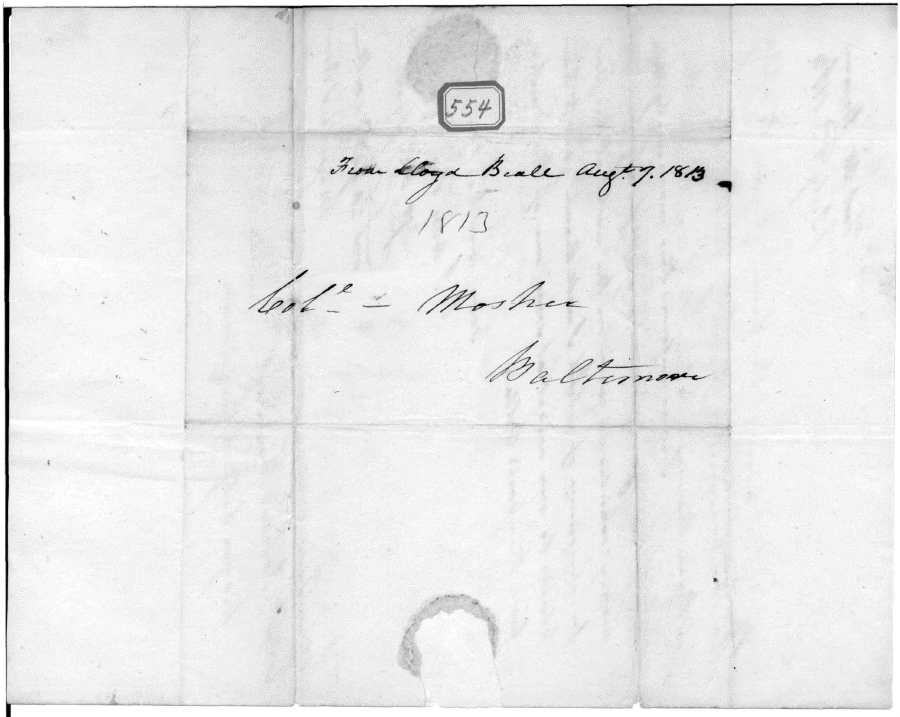 554
From Lloyd Beall Augt. 7. 1813
1813
Cole – Mosher
Baltimore